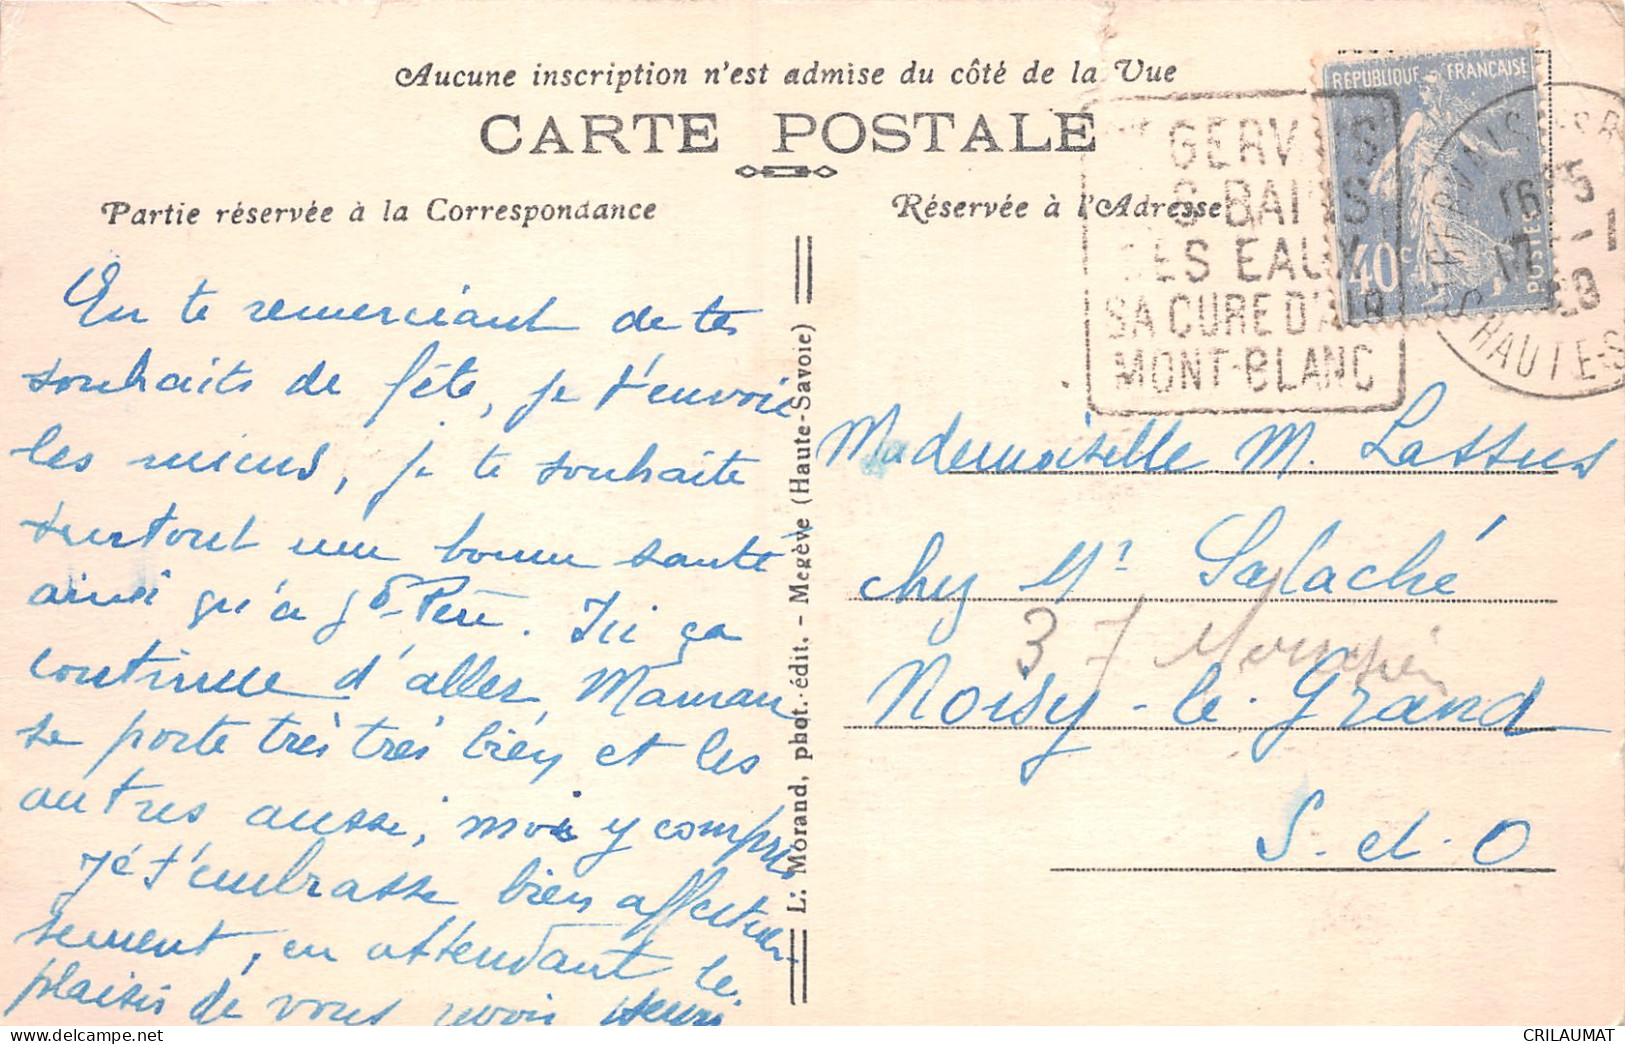 Aucune inscription n'est admise du côté de la Vue
CARTE POSTALE
Partie réservée à la Correspondance
Réservée à l'Adresse
RÉPUBLIQUE FRANÇAISE
40c
POSTES
GERVAIS
S-BAINS
SES EAUX
SA CURE D'AIR
MONT-BLANC
ST GERVAIS-LES-B
16 15
17 - 1
28
HTE HAUTE-S
En te remerciant de tes
souhaits de fête, je t'envoie
les miens, je te souhaite
surtout une bonne santé
ainsi qu'à gd-Père. Ici ça
continue d'aller, Maman
se porte très très bien et les
autres aussi, moi y compris
Je t'embrasse bien affectueu-
sement, en attendant le
plaisir de vous revoir Henri
L. Morand, phot.-édit. - Megève (Haute-Savoie)
Mademoiselle M. Lassus
chez Mr Salaché
37
Noisy-le-Grand
S.-et-O
CRILAUMAT